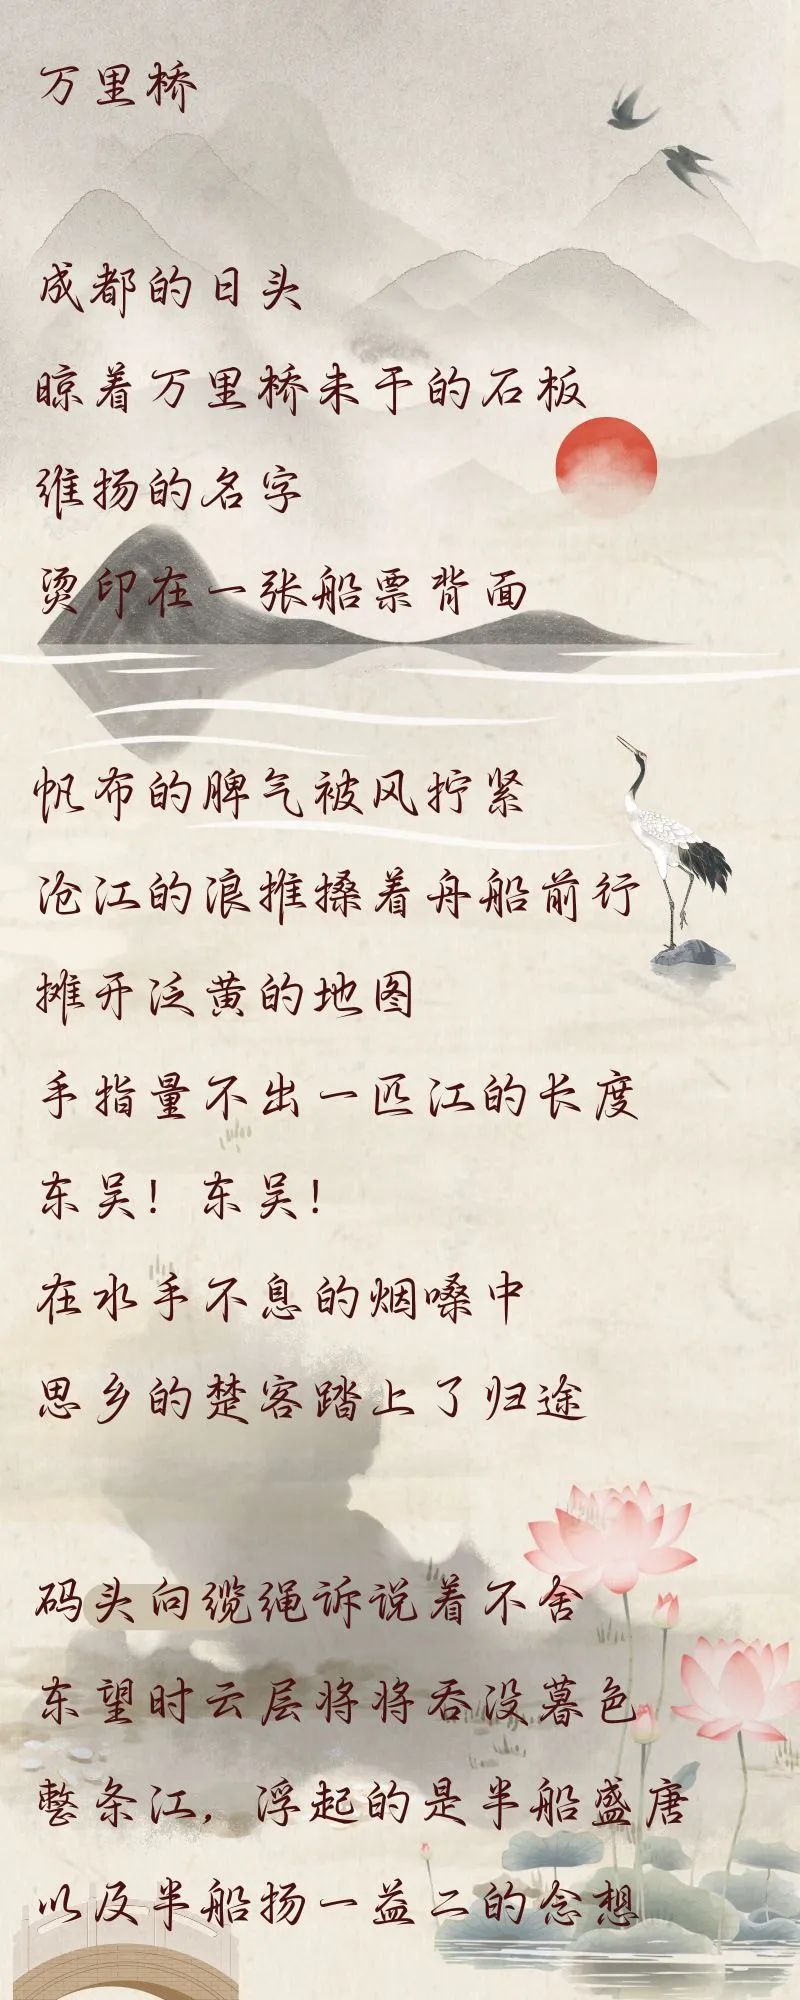 万里桥
成都的日头
晾着万里桥未干的石板
维扬的名字
烫印在一张船票背面
帆布的脾气被风拧紧
沧江的浪推搡着舟船前行
摊开泛黄的地图
手指量不出一匹江的长度
东吴！东吴！
在水手不息的烟嗓中
思乡的楚客踏上了归途
码头向缆绳诉说着不舍
东望时云层将将吞没暮色
整条江，浮起的是半船盛唐
以及半船扬一益二的念想